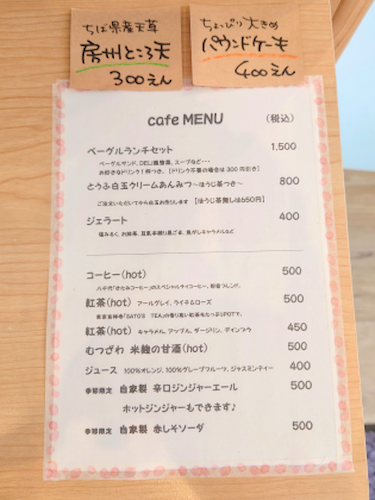 ちば県産天草
房州ところ天
300えん
ちょっぴり大きめ
パウンドケーキ
400えん
cafe MENU (税込)
ベーグルランチセット 1,500
ベーグルサンド、DELI盛り、スープなど・・・
お好きなドリンク1杯つき。【ドリンク不要の場合は300円引き】
とうふ白玉クリームあんみつ～ほうじ茶つき～ 800
ご注文いただいてから白玉お作りします 【ほうじ茶無しは650円】
ジェラート 400
塩みるく、お抹茶、豆乳 黒ごま、焦がしキャラメルなど
コーヒー(hot) 500
八千代「さかみコーヒー」のスペシャルティコーヒー、和音ブレンド。
紅茶(hot) アールグレイ、ライチ&ローズ 500
東京吉祥寺「SATO'S TEA」の香り高い紅茶をたっぷりPOTで。
紅茶(hot) キャラメル、アップル、ダージリン、ディンブラ 450
むつざわ 米麹の甘酒(hot) 500
ジュース 100%オレンジ、100%グレープフルーツ、ジャスミンティー 400
季節限定 自家製 辛口ジンジャーエール 500
ホットジンジャーもできます♪
季節限定 自家製 赤しそソーダ 500